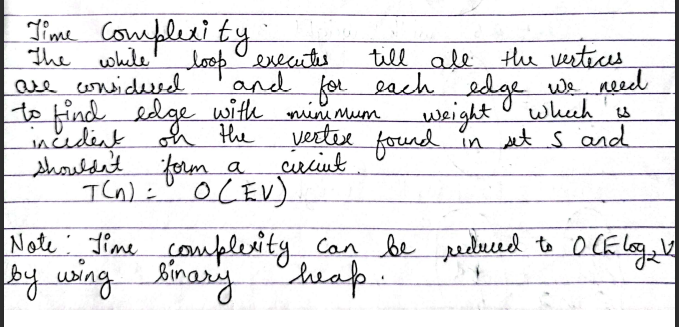 Time Complexity :
The while loop executes till all the vertices
are considered and for each edge we need
to find edge with minimum weight which is
incident on the vertex found in set S and
shouldn't form a circuit.
T(n) = O(EV)
Note : Time complexity can be reduced to O(E log₂V
by using binary heap.